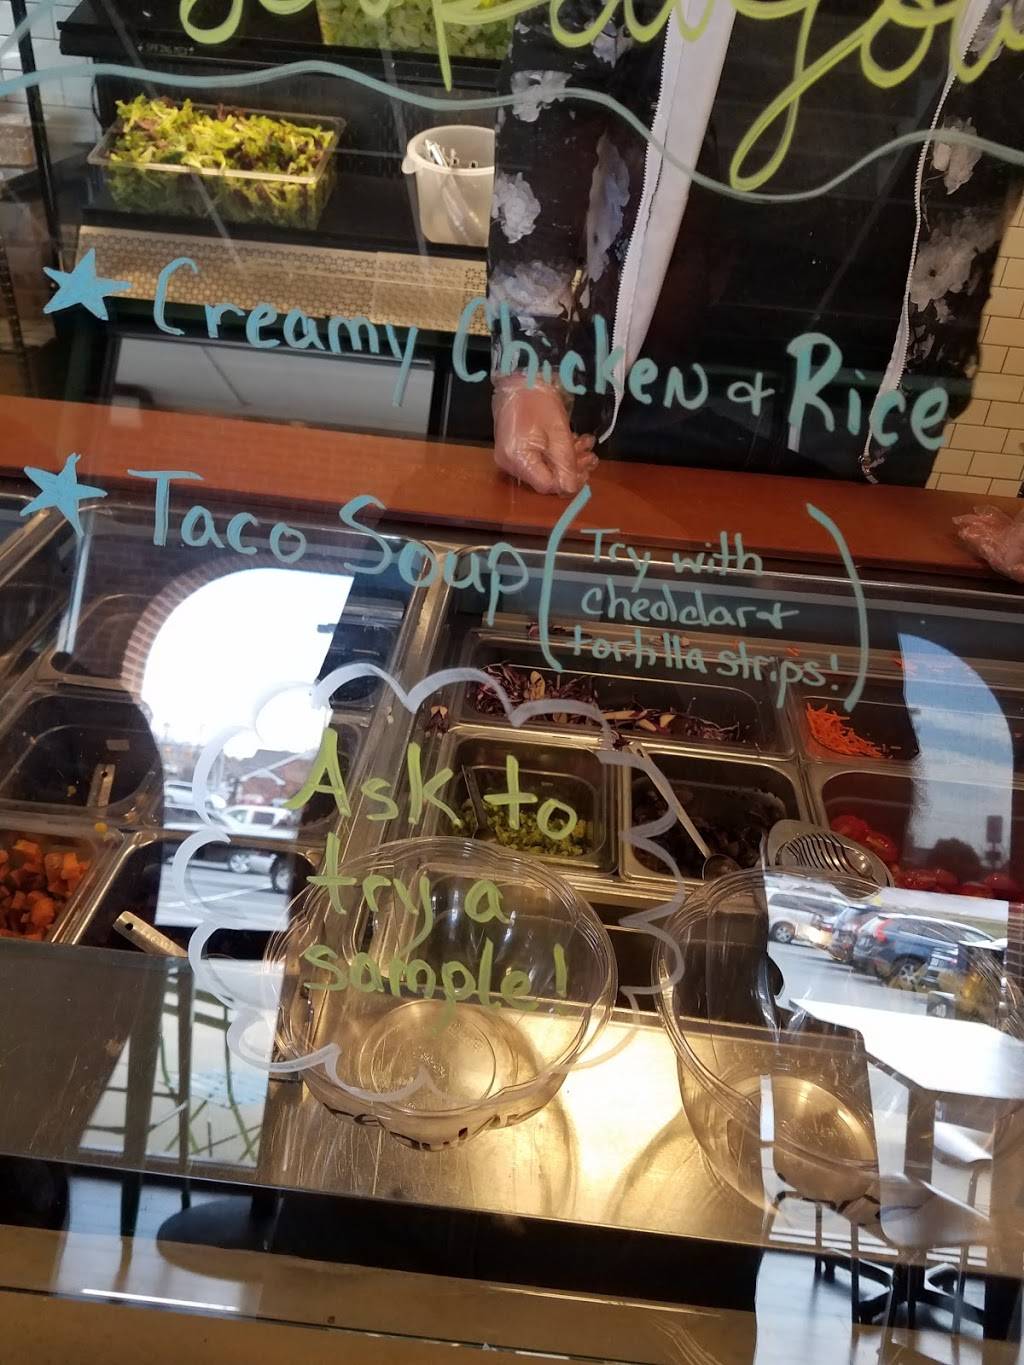 Creamy Chicken & Rice
Taco Soup (Try with
cheddar &
tortilla strips!)
Ask to
try a
sample!